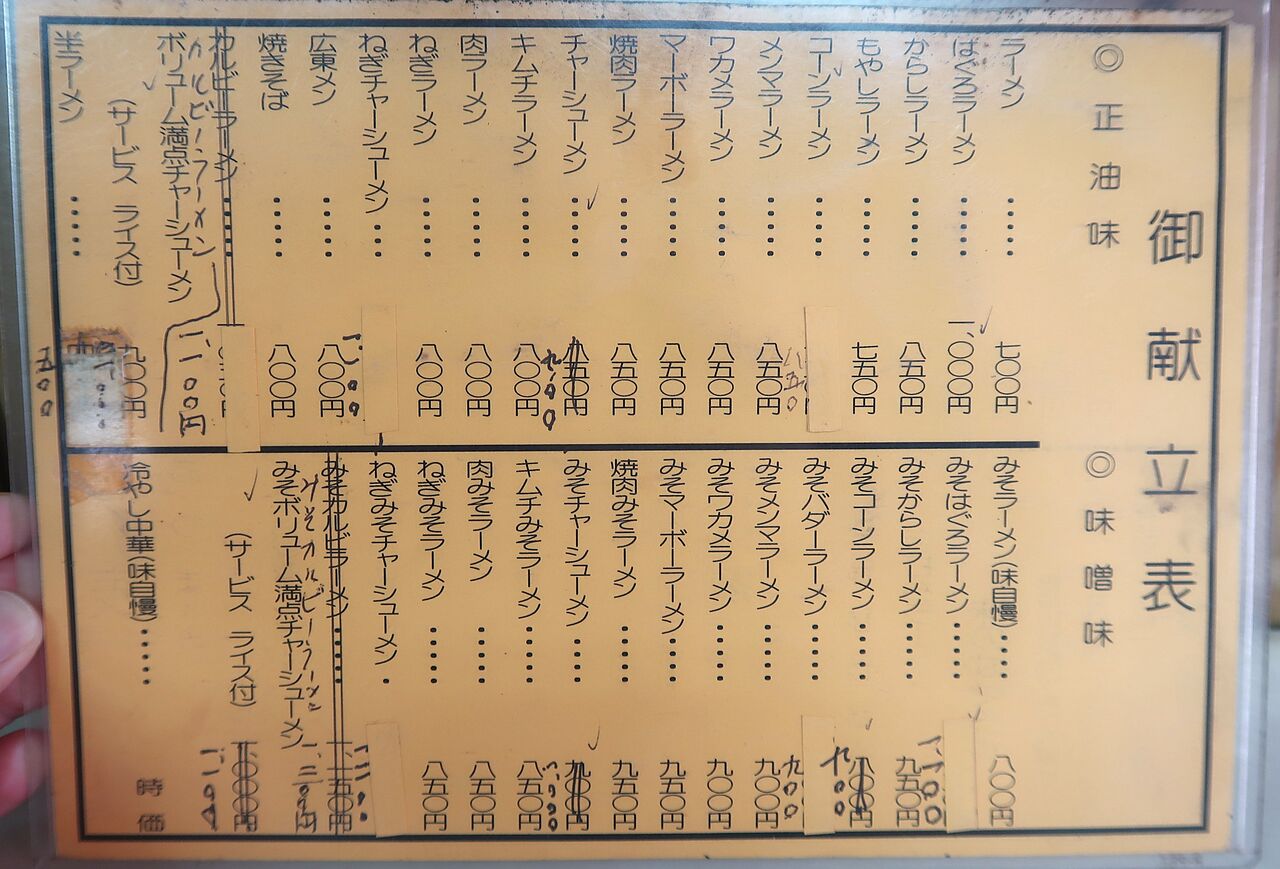 御献立表
◎正油味
ラーメン……七〇〇円
ばぐろラーメン……一、〇〇〇円
からしラーメン……八五〇円
もやしラーメン……七五〇円
コーンラーメン……
八五〇
メンマラーメン……八五〇円
ワカメラーメン……八五〇円
マーボーラーメン……八五〇円
焼肉ラーメン……八五〇円
チャーシューメン……八五〇円
九〇〇
キムチラーメン……八〇〇円
肉ラーメン……八〇〇円
ねぎラーメン……八〇〇円
ねぎチャーシューメン……
広東メン……八〇〇円
焼きそば……八〇〇円
カルビーラーメン……
カルビーラーメン 一、一〇〇円
ボリューム満点チャーシューメン
(サービス ライス付) 九〇〇円
半ラーメン……
五〇〇
◎味噌味
みそラーメン(味自慢)……八〇〇円
みそはぐろラーメン……
みそからしラーメン……九五〇円
みそコーンラーメン……八〇〇円
九〇〇
みそバダーラーメン……
みそメンマラーメン……九〇〇円
みそワカメラーメン……九〇〇円
みそマーボーラーメン……九五〇円
焼肉みそラーメン……九五〇円
みそチャーシューメン……九五〇円
一、〇〇〇
キムチみそラーメン……八五〇円
肉みそラーメン……八五〇円
ねぎみそラーメン……八五〇円
ねぎみそチャーシューメン・
みそカルビラーメン……
みそカルビーラーメン
みそボリューム満点チャーシューメン
(サービス ライス付)
冷やし中華(味自慢)……時価